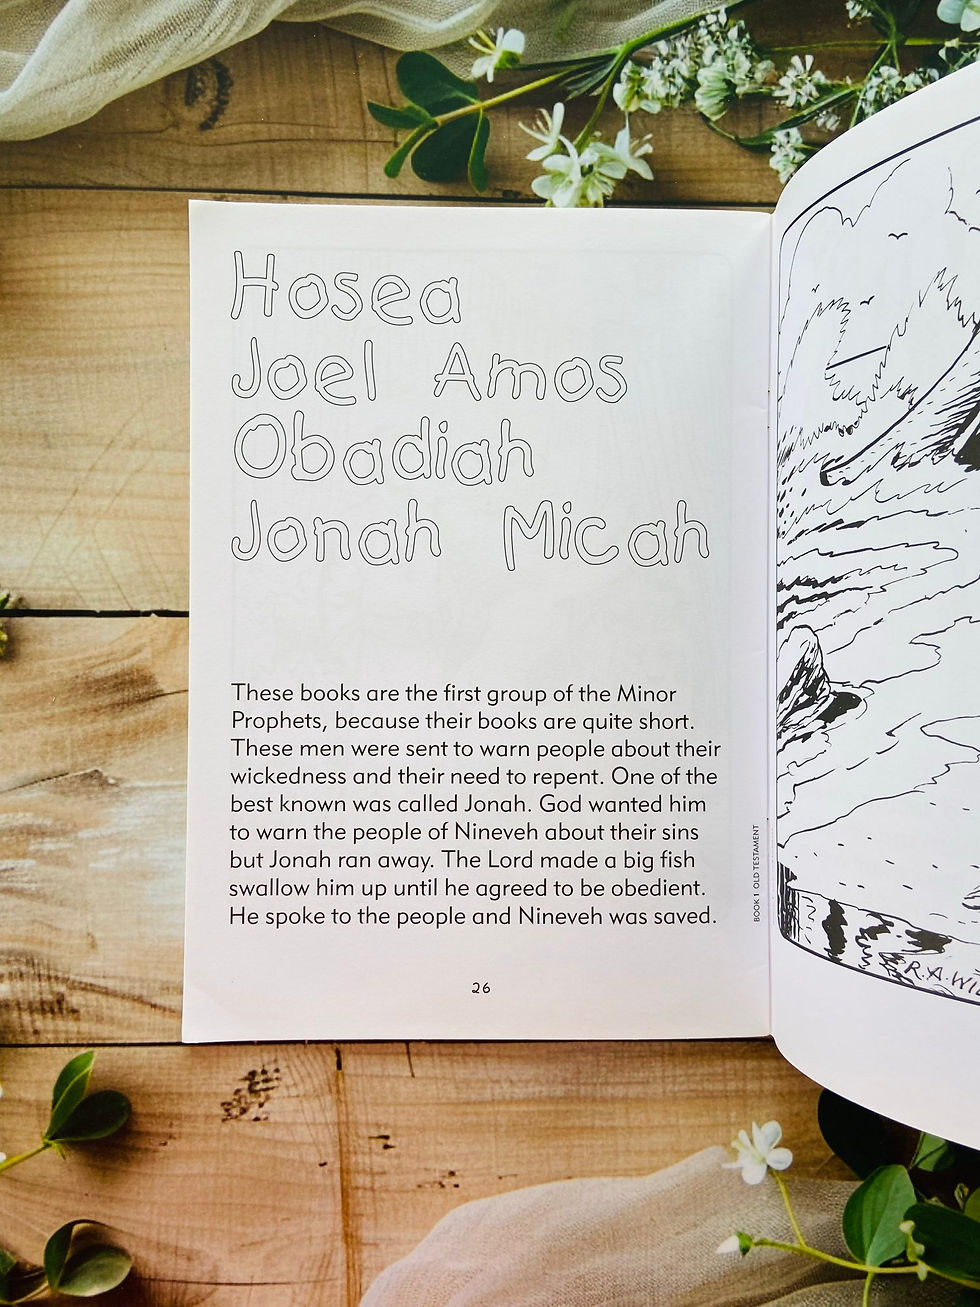 Hosea
Joel Amos
Obadiah
Jonah Micah
These books are the first group of the Minor
Prophets, because their books are quite short.
These men were sent to warn people about their
wickedness and their need to repent. One of the
best known was called Jonah. God wanted him
to warn the people of Nineveh about their sins
but Jonah ran away. The Lord made a big fish
swallow him up until he agreed to be obedient.
He spoke to the people and Nineveh was saved.
26
BOOK 1 OLD TESTAMENT
R.A.